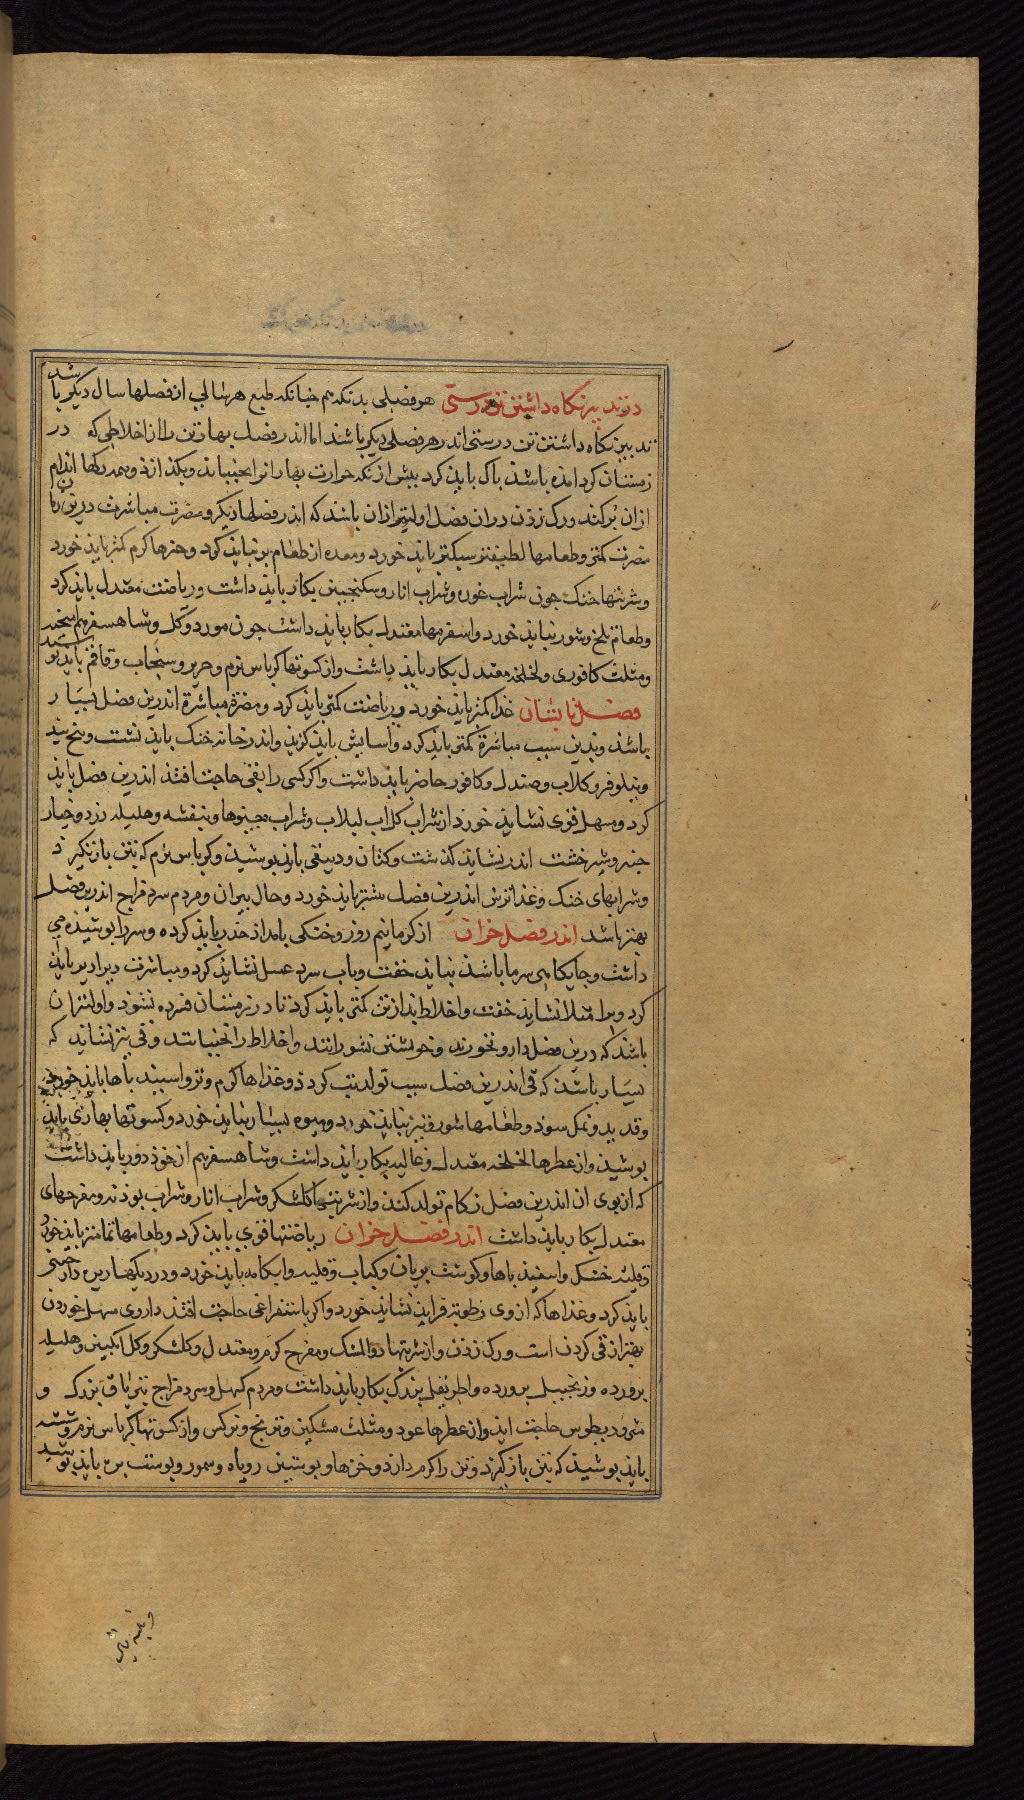 در تدبیر نگاه داشتن تن درستی هر فصلی بدنکه هم چنانکه طبع هر سالی از فصلها سال دیکر باشد
تدبیر نکاه داشتن تن درستی اندر هر فصلی دیکر باشد اما اندر فصل بهار تن را از اخلاطی که در
زمستان کرد امده باشد پاک باید کرد پیش از آنکه حرارت بهار آنرا بجنباند و بکدازد و همه رکها اندام
ازان پر کند ورک زدن دران فصل اولیتر ازان باشد که اندر فصلها دیکر و مضرت مباشرت درین زمان
مضرت کمتر وطعامها لطیفتر سبکتر باید خورد ومعده از طعام پر نباید کرد وچیزها کرم کمتر باید خورد
وشربتها خنک چون شراب غوره وشراب انار وسکنجبین بکار باید داشت وریاضت معتدل باید کرد
وطعام تلخ وشور نباید خورد واسفرمها معتدل بکار باید داشت چون مورد وکل وشاهسفرم
ومثلث کافوری ولخلخه معتدل بکار باید داشت واز کسوتها کرباس نرم وحریر وسنجاب وقاقم باید پوشید
فصل تابستان غذا کمتر باید خورد وریاضت کمتر باید کرد ومضرة مباشرة اندرین فصل بسیار
باشد وبدین سبب مباشرة کمتر باید کرد واسایش باید کزید واندر خانه خنک باید نشست وبنج بید
ونیلوفر وکلاب وصندل وکافور حاضر باید داشت واکر کسی را بقی حاجت افتد اندرین فصل باید
کرد ومسهل قوی نشاید خورد از شراب کلاب لبلاب وشراب معجونها وبنفشه وهلیله زرد وخیار
جنبر وشیرخشت اندر نشاید کذشت وکتان ودبیقی باید پوشید وکرباس نرم که بتن باز نکیرد
وشرابهای خنک وغذا ترش اندرین فصل بیشتر باید خورد وحال پیران ومردم سرد مزاج اندرین فصل
بهتر باشد اندر فصل خزان از کرما نیم روز وخنکی بامداد حذر باید کرد وسر را پوشیده می
داشت وجایکاهی سرما باشد نباید خفت وباب سرد غسل نشاید کرد ومباشرت
کرد وبر امتلا نشاید خفت واخلاط بد از تن کمتر باید کرد تا در زمستان فسرده نشود واولیتر ان
باشد که درین فصل دارو نخورند وخویشتن نشورانند واخلاط را نجنبانند وقی نیز نشاید که
بسیار باشد که قی اندرین فصل سبب تولد تب کردد وغذاها کرم وتر واسپید باها باید خورد
وقدید ونمک سود وطعامها شور وتیز نباید خورد ومیوه بسیار نباید خورد وکسوتها بهاری باید
پوشید واز عطرها لخلخه معتدل وغالیه بکار باید داشت وشاهسفرم از خود دور باید داشت
که از بوی ان اندرین فصل زکام تولد کند واز شربتها کلشکر وشراب انار وشراب بودنه ومفرحهای
معتدل بکار باید داشت اندر فصل خزان ریاضتها قوی باید کرد وطعامها تمامتر باید خورد
وقلیه خشک واسفید باها وکوشت بریان وکباب وقلیه وابکامه باید خورد ودر دیکها زیره دارچینی
باید کرد وغذاها که ازوی رطوبة فزاید نشاید خورد واکر باستفراغی حاجت افتد داروی مسهل خوردن
بهتر از قی کردن است ورک زدن واز شربتها دوالمسک ومفرح کرم ومعتدل وکلشکر وکل انکبین وهلیله
پرورده وزنجبیل پرورده واطریفل بزرک بکار باید داشت ومردم کهل وسرد مزاج بتریاق بزرک و
مثرودیطوس حاجت اید واز عطرها عود ومثلث مشکین وترنج ونرکس واز کسوتها کرباس نرم
باید پوشید که بتن باز کیرد وتن را کرم دارد وخزها وپوستین روباه وسمور وپوست بره باید پوشید